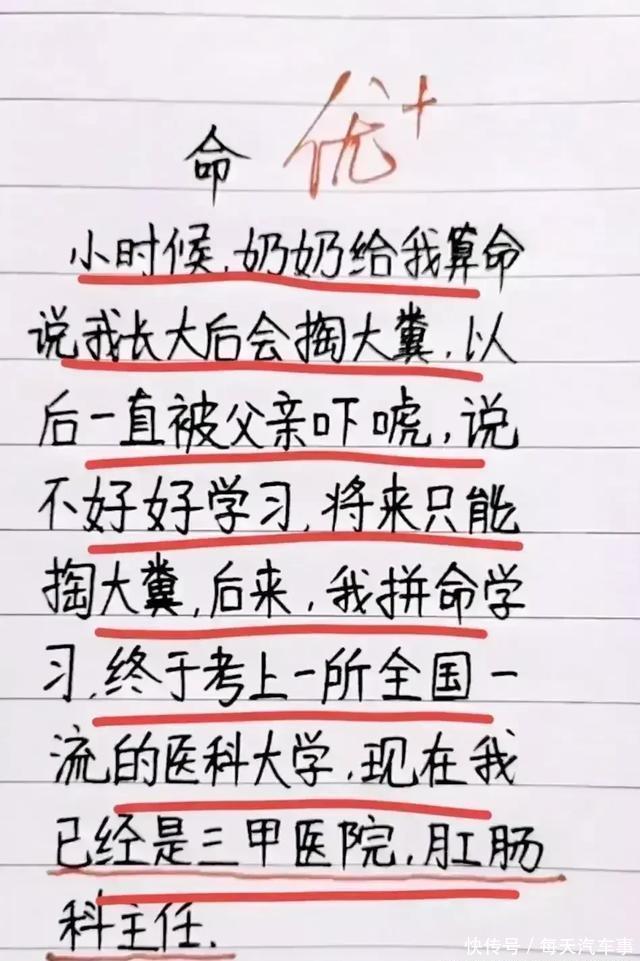 命 优+
小时候,奶奶给我算命
说我长大后会掏大粪,以
后一直被父亲吓唬,说
不好好学习,将来只能
掏大粪,后来,我拼命学
习,终于考上一所全国一
流的医科大学,现在我
已经是三甲医院,肛肠
科主任.
快传号/每天汽车事